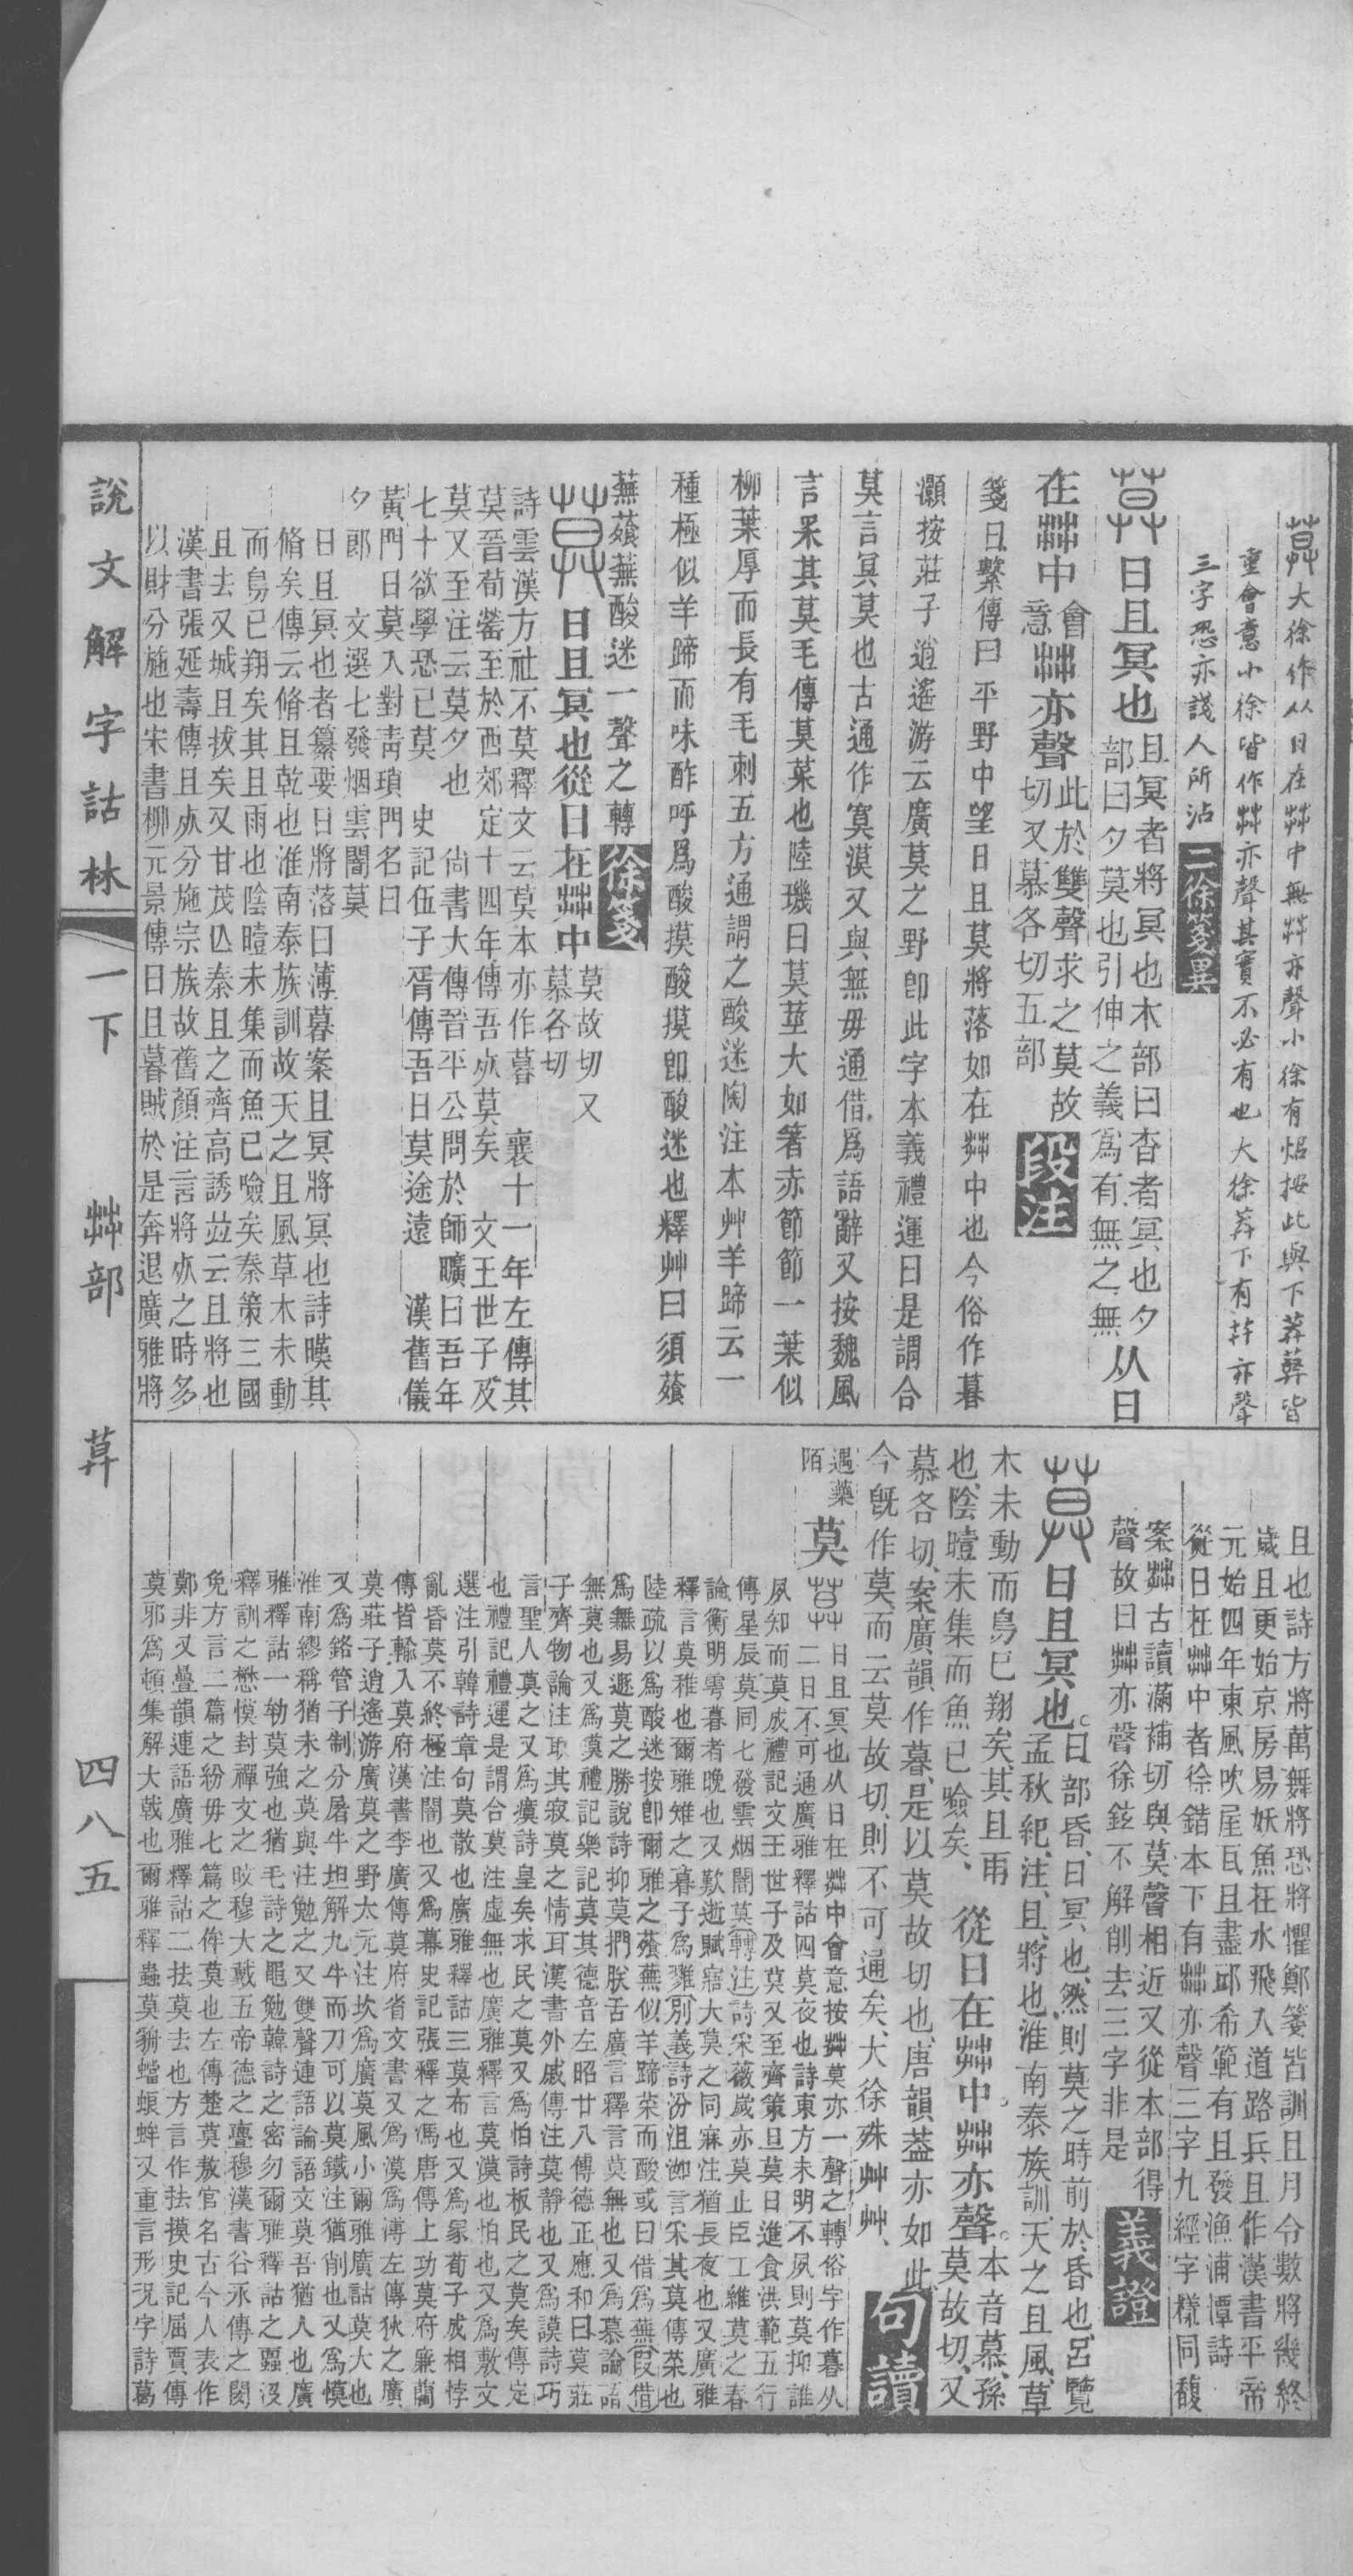 莫大徐作从日在茻中無茻亦聲小徐有炤按此與下莽葬皆
重會意小徐皆作茻亦聲其實不必有也大徐葬下有茻亦聲
三字恐亦淺人所沾二徐箋異
莫日且冥也且冥者將冥也木部曰杳者冥也夕
部曰夕莫也引伸之義爲有無之無从日
在茻中會意茻亦聲此於雙聲求之莫故
切又慕各切五部段注
箋曰繫傳曰平野中望日且莫將落如在茻中也今俗作暮
灝按莊子逍遙游云廣莫之野卽此字本義禮運曰是謂合
莫言冥莫也古通作寞漠又與無毋通借爲語辭又按魏風
言采其莫毛傳莫菜也陸璣曰莫莖大如箸赤節節一葉似
柳葉厚而長有毛刺五方通謂之酸迷陶注本艸羊蹄云一
種極似羊蹄而味酢呼爲酸摸酸摸卽酸迷也釋艸曰須薞
蕪薞蕪酸迷一聲之轉徐箋
莫日且冥也從日在茻中莫故切又
慕各切
詩雲漢方社不莫釋文云莫本亦作暮 襄十一年左傳其
莫晉荀罃至於西郊定十四年傳吾夙莫矣 文王世子及
莫又至注云莫夕也 尙書大傳晉平公問於師曠曰吾年
七十欲學恐已莫 史記伍子胥傳吾日莫途遠 漢舊儀
黃門日莫入對靑瑣門名曰
夕郞 文選七發烟雲闇莫
日且冥也者纂要日將落曰薄暮案且冥將冥也詩暵其
脩矣傳云脩且乾也淮南泰族訓故天之且風草木未動
而鳥已翔矣其且雨也陰曀未集而魚已噞矣秦策三國
且去又城且拔矣又甘茂亾秦且之齊高誘竝云且將也
漢書張延壽傳且夙分施宗族故舊顏注言將夙之時多
以財分施也宋書柳元景傳日且暮賊於是奔退廣雅將
且也詩方將萬舞將恐將懼鄭箋皆訓且月令數將幾終
歲且更始京房易妖魚在水飛入道路兵且作漢書平帝
元始四年東風吹屋瓦且盡邱希範有且發漁浦潭詩
從日在茻中者徐鍇本下有茻亦聲三字九經字樣同馥
案茻古讀滿補切與莫聲相近又從本部得
聲故曰茻亦聲徐鉉不解削去三字非是義證
莫日且冥也日部昏日冥也然則莫之時前於昏也呂覽
孟秋紀注且將也淮南泰族訓天之且風草
木未動而鳥已翔矣其且雨
也陰曀未集而魚已噞矣從日在茻中茻亦聲本音慕孫
莫故切又
慕各切案廣韻作暮是以莫故切也唐韻葢亦如此
今旣作莫而云莫故切則不可通矣大徐殊艸艸句讀
遇藥
陌莫莫日且冥也从日在茻中會意按茻莫亦一聲之轉俗字作暮从
二日不可通廣雅釋詁四莫夜也詩東方未明不夙則莫抑誰
夙知而莫成禮記文王世子及莫又至齊策旦莫日進食洪範五行
傳星辰莫同七發雲烟闇莫轉注詩采薇歲亦莫止臣工維莫之春
論衡明雩暮者晚也又歎逝賦寤大莫之同寐注猶長夜也又廣雅
釋言莫稚也爾雅雉之暮子爲鷚別義詩汾沮洳言采其莫傳菜也
陸疏以爲酸迷按卽爾雅之薞蕪似羊蹄菜而酸或曰借爲蕪叚借
爲無易遯莫之勝說詩抑莫捫朕舌廣言釋言莫無也又爲慕論語
無莫也又爲嗼禮記樂記莫其德音左昭廿八傳德正應和曰莫莊
子齊物論注取其寂莫之情耳漢書外戚傳注莫靜也又爲謨詩巧
言聖人莫之又爲瘼詩皇矣求民之莫又爲怕詩板民之莫矣傳定
也禮記禮運是謂合莫注虛無也廣雅釋言莫漠也怕也又爲敷文
選注引韓詩章句莫散也廣雅釋詁三莫布也又爲冢荀子成相悖
亂昏莫不終極注闇也又爲幕史記張釋之馮唐傳上功莫府廉藺
傳皆輸入莫府漢書李廣傳莫府省文書又爲漠爲溥左傳狄之廣
莫莊子逍遙游廣莫之野大元注坎爲廣莫風小爾雅廣詁莫大也
又爲鉻管子制分屠牛坦解九牛而刀可以莫鐵注猶削也又爲慔
淮南繆稱猶未之莫與注勉之又雙聲連語論語文莫吾猶人也廣
雅釋詁一劺莫強也猶毛詩之黽勉韓詩之密勿爾雅釋詁之蠠沒
釋訓之懋慔封禪文之旼穆大戴五帝德之亹穆漢書谷永傳之閔
免方言二篇之紛毋七篇之侔莫也左傳楚莫敖官名古今人表作
鄭非又疊韻連語廣雅釋詁二抾莫去也方言作抾摸史記屈賈傳
莫邪爲頓集解大戟也爾雅釋蟲莫貈蟷蜋蛑又重言形況字詩葛
說文解字詁林 一下 茻部 茻 四八五